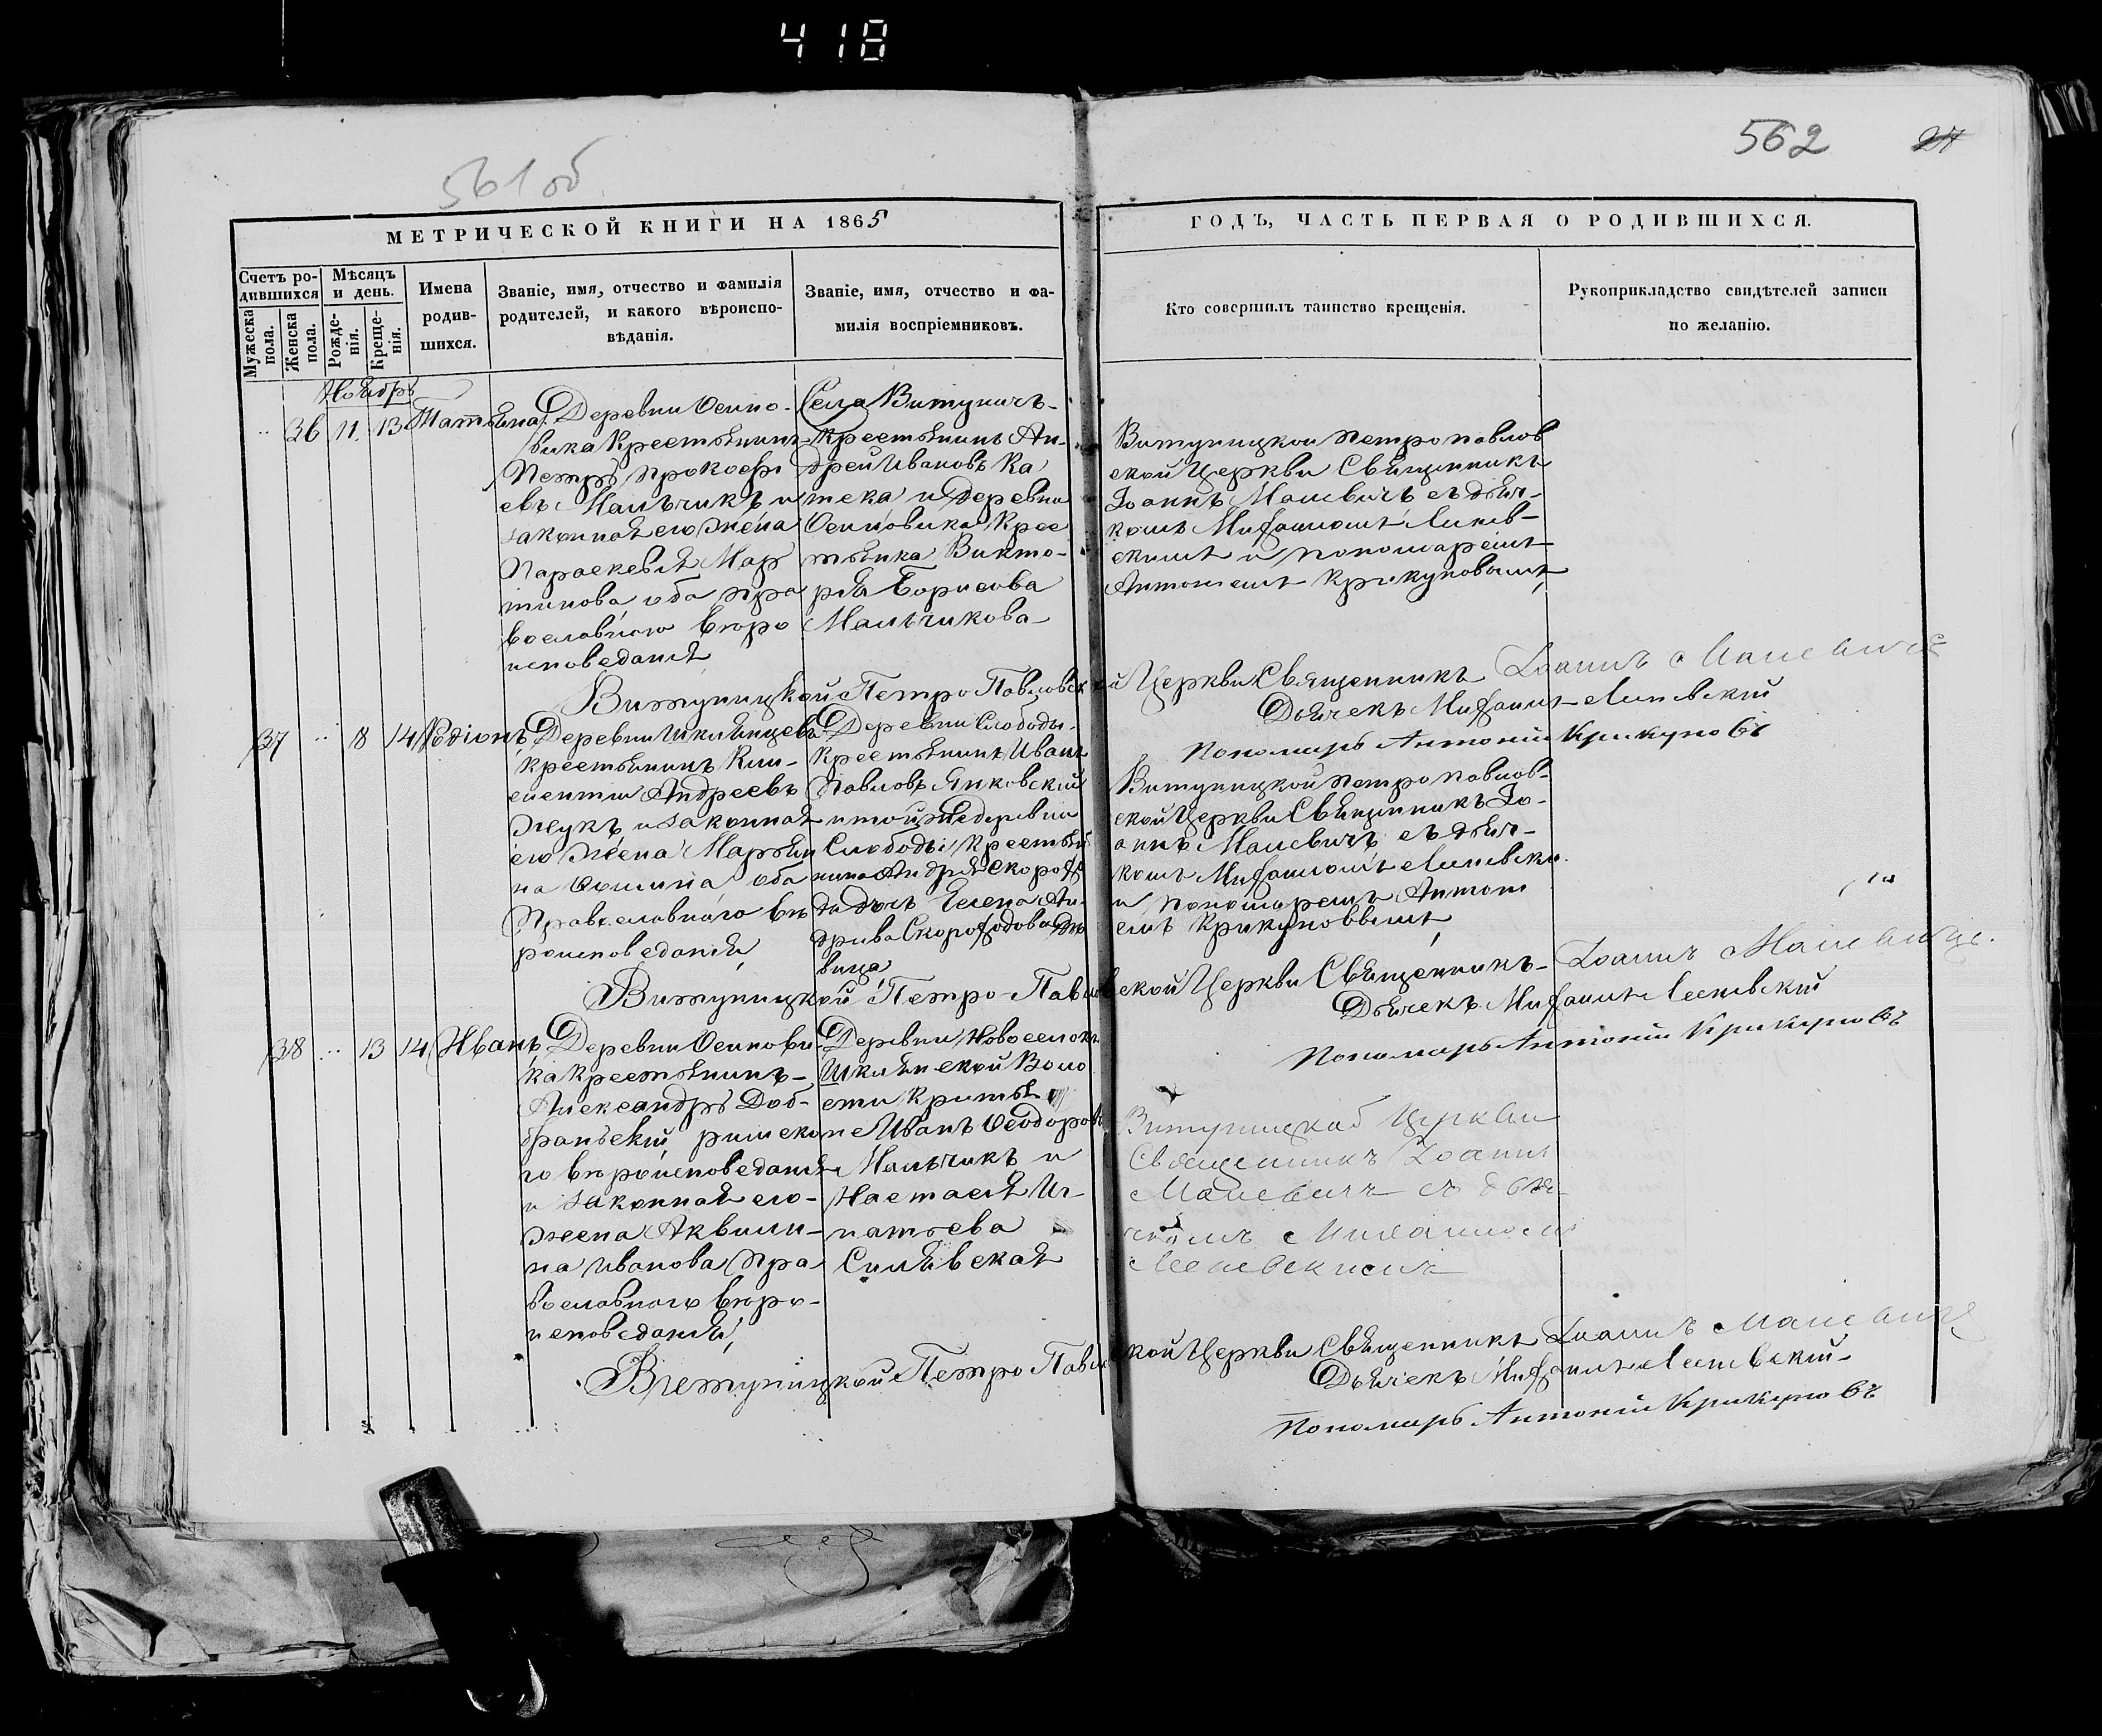 418
561 об
562
27
МЕТРИЧЕСКОЙ КНИГИ НА 1865
ГОДЪ, ЧАСТЬ ПЕРВАЯ О РОДИВШИХСЯ.
Счетъ ро-
дившихся
Мужеска
пола.
Женска
пола.
Мѣсяцъ
и день.
Рожде-
нія.
Креще-
нія.
Имена
родив-
шихся.
Званіе, имя, отчество и фамилія
родителей, и какого вѣроиспо-
вѣданія.
Званіе, имя, отчество и фа-
милія воспріемниковъ.
Кто совершилъ таинство крещенія.
Рукоприкладство свидѣтелей записи
по желанію.
Ноябрь
36 11 13 Татьяна
Деревни Осино-
вика Крестьянинъ
Петръ Прокофи
евъ Мальчикъ и
законная его жена
Параскевія Мар
тинова, оба пра
вославного вѣро
исповеданія
Села Витуничъ
крестьянинъ Ан-
дрей Ивановъ Ка
тека и Деревни
Осиновика Крес
тьянка Викто-
рія Борисова
Мальчикова
Витуницкой Петропавлов
ской Церкви Священникъ
Іоаннъ Малевичъ съ дьяч-
комъ
и пономаремъ
Антониемъ Крикуновымъ
Витуницкой Петро Павловской Церкви Священникъ Іоаннъ Малевичъ
Дьячекъ
Пономарь Антоній Крикуновъ
37 8 14 Родіонъ
Деревни Шклянцевъ
крестьянинъ Кли-
ментии Андреевъ
Жукъ и законная
его жена Марья
на Фомина оба
Православного вѣ
роисповеданія
Деревни Слободы
Крестьянинъ Иванъ
Павловъ Янковский
и той же деревни
Слободы Крестья
нина Андрея Скорохо
да дочь Елена Ан-
дриева Скороходова дѣ
вица
Витуницкой Петропавлов-
ской Церкви Священникъ Іо-
аннъ Малевичъ съ дьяч-
комъ
и пономаремъ Антони
емъ Крикуновымъ
Витуницкой Петро-Павловской Церкви Священникъ Іоаннъ Малевичъ
Дьячекъ
Пономарь Антоній Крикуновъ
38 13 14 Иванъ
Деревни Осинови-
ка Крестьянинъ
Александръ Доб-
ранский римско
го вѣроисповеданія
и законная его
жена Аквили-
на Иванова Пра
вославного вѣро-
исповеданія
Деревни Новоселокъ
Шклянской Воло
сти
Иванъ Феодоровъ
Мальчикъ и
Настасія Иг-
натьева
Силявская
Витуницкой Церкви
Священникъ Іоаннъ
Малевичъ съ дья-
чкомъ
Витуницкой Петро Павловской Церкви Священникъ Іоаннъ Малевичъ
Дьячекъ
Пономарь Антоній Крикуновъ